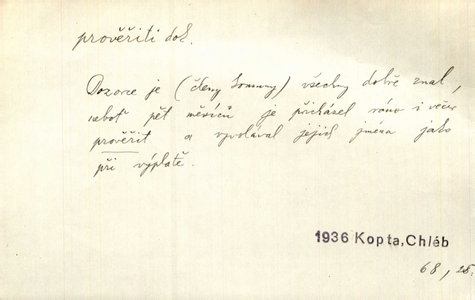 prověřiti dok.
Dozorce je (členy komuny) všechny dobře znal,
neboť pět měsíců je přicházel ráno i večer
prověřit a vyvolával jejich jména jako
při výplatě.
1936 Kopta, Chléb
68, 28.